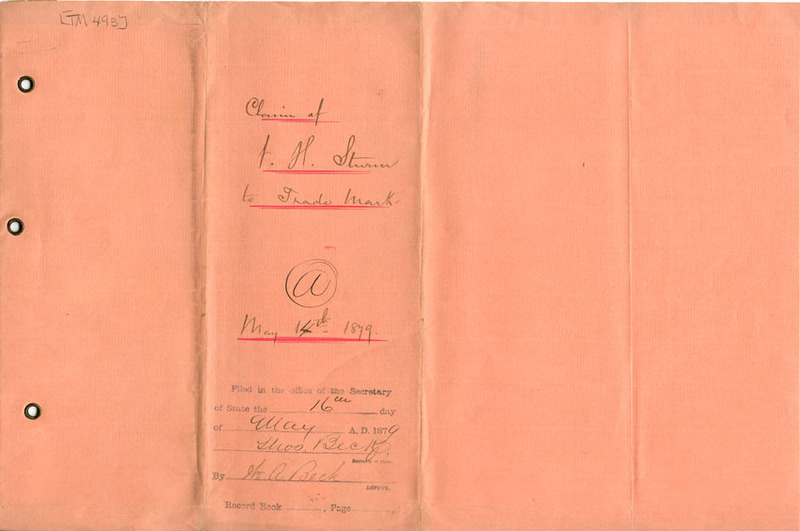 [TM 493]
Claim of
F. H. Sturm
to Trade Mark
a
May 14th 1879.
Filed in the office of the Secretary
of State the 16th day
of May A.D. 1879
Thos. Beck,
Secretary of State.
By W. A. Beck
DEPUTY.
Record Book , Page